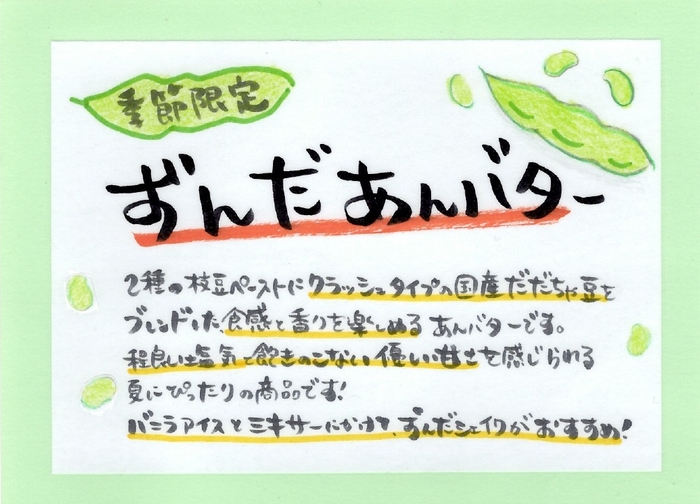 季節限定
ずんだあんバター
2種の枝豆ペーストにクラッシュタイプの国産だだちゃ豆を
ブレンドした、食感と香りを楽しめるあんバターです。
程良い塩気と飽きのこない優しい甘さを感じられる
夏にぴったりの商品です!
バニラアイスとミキサーにかけて、ずんだシェイクがおすすめ!